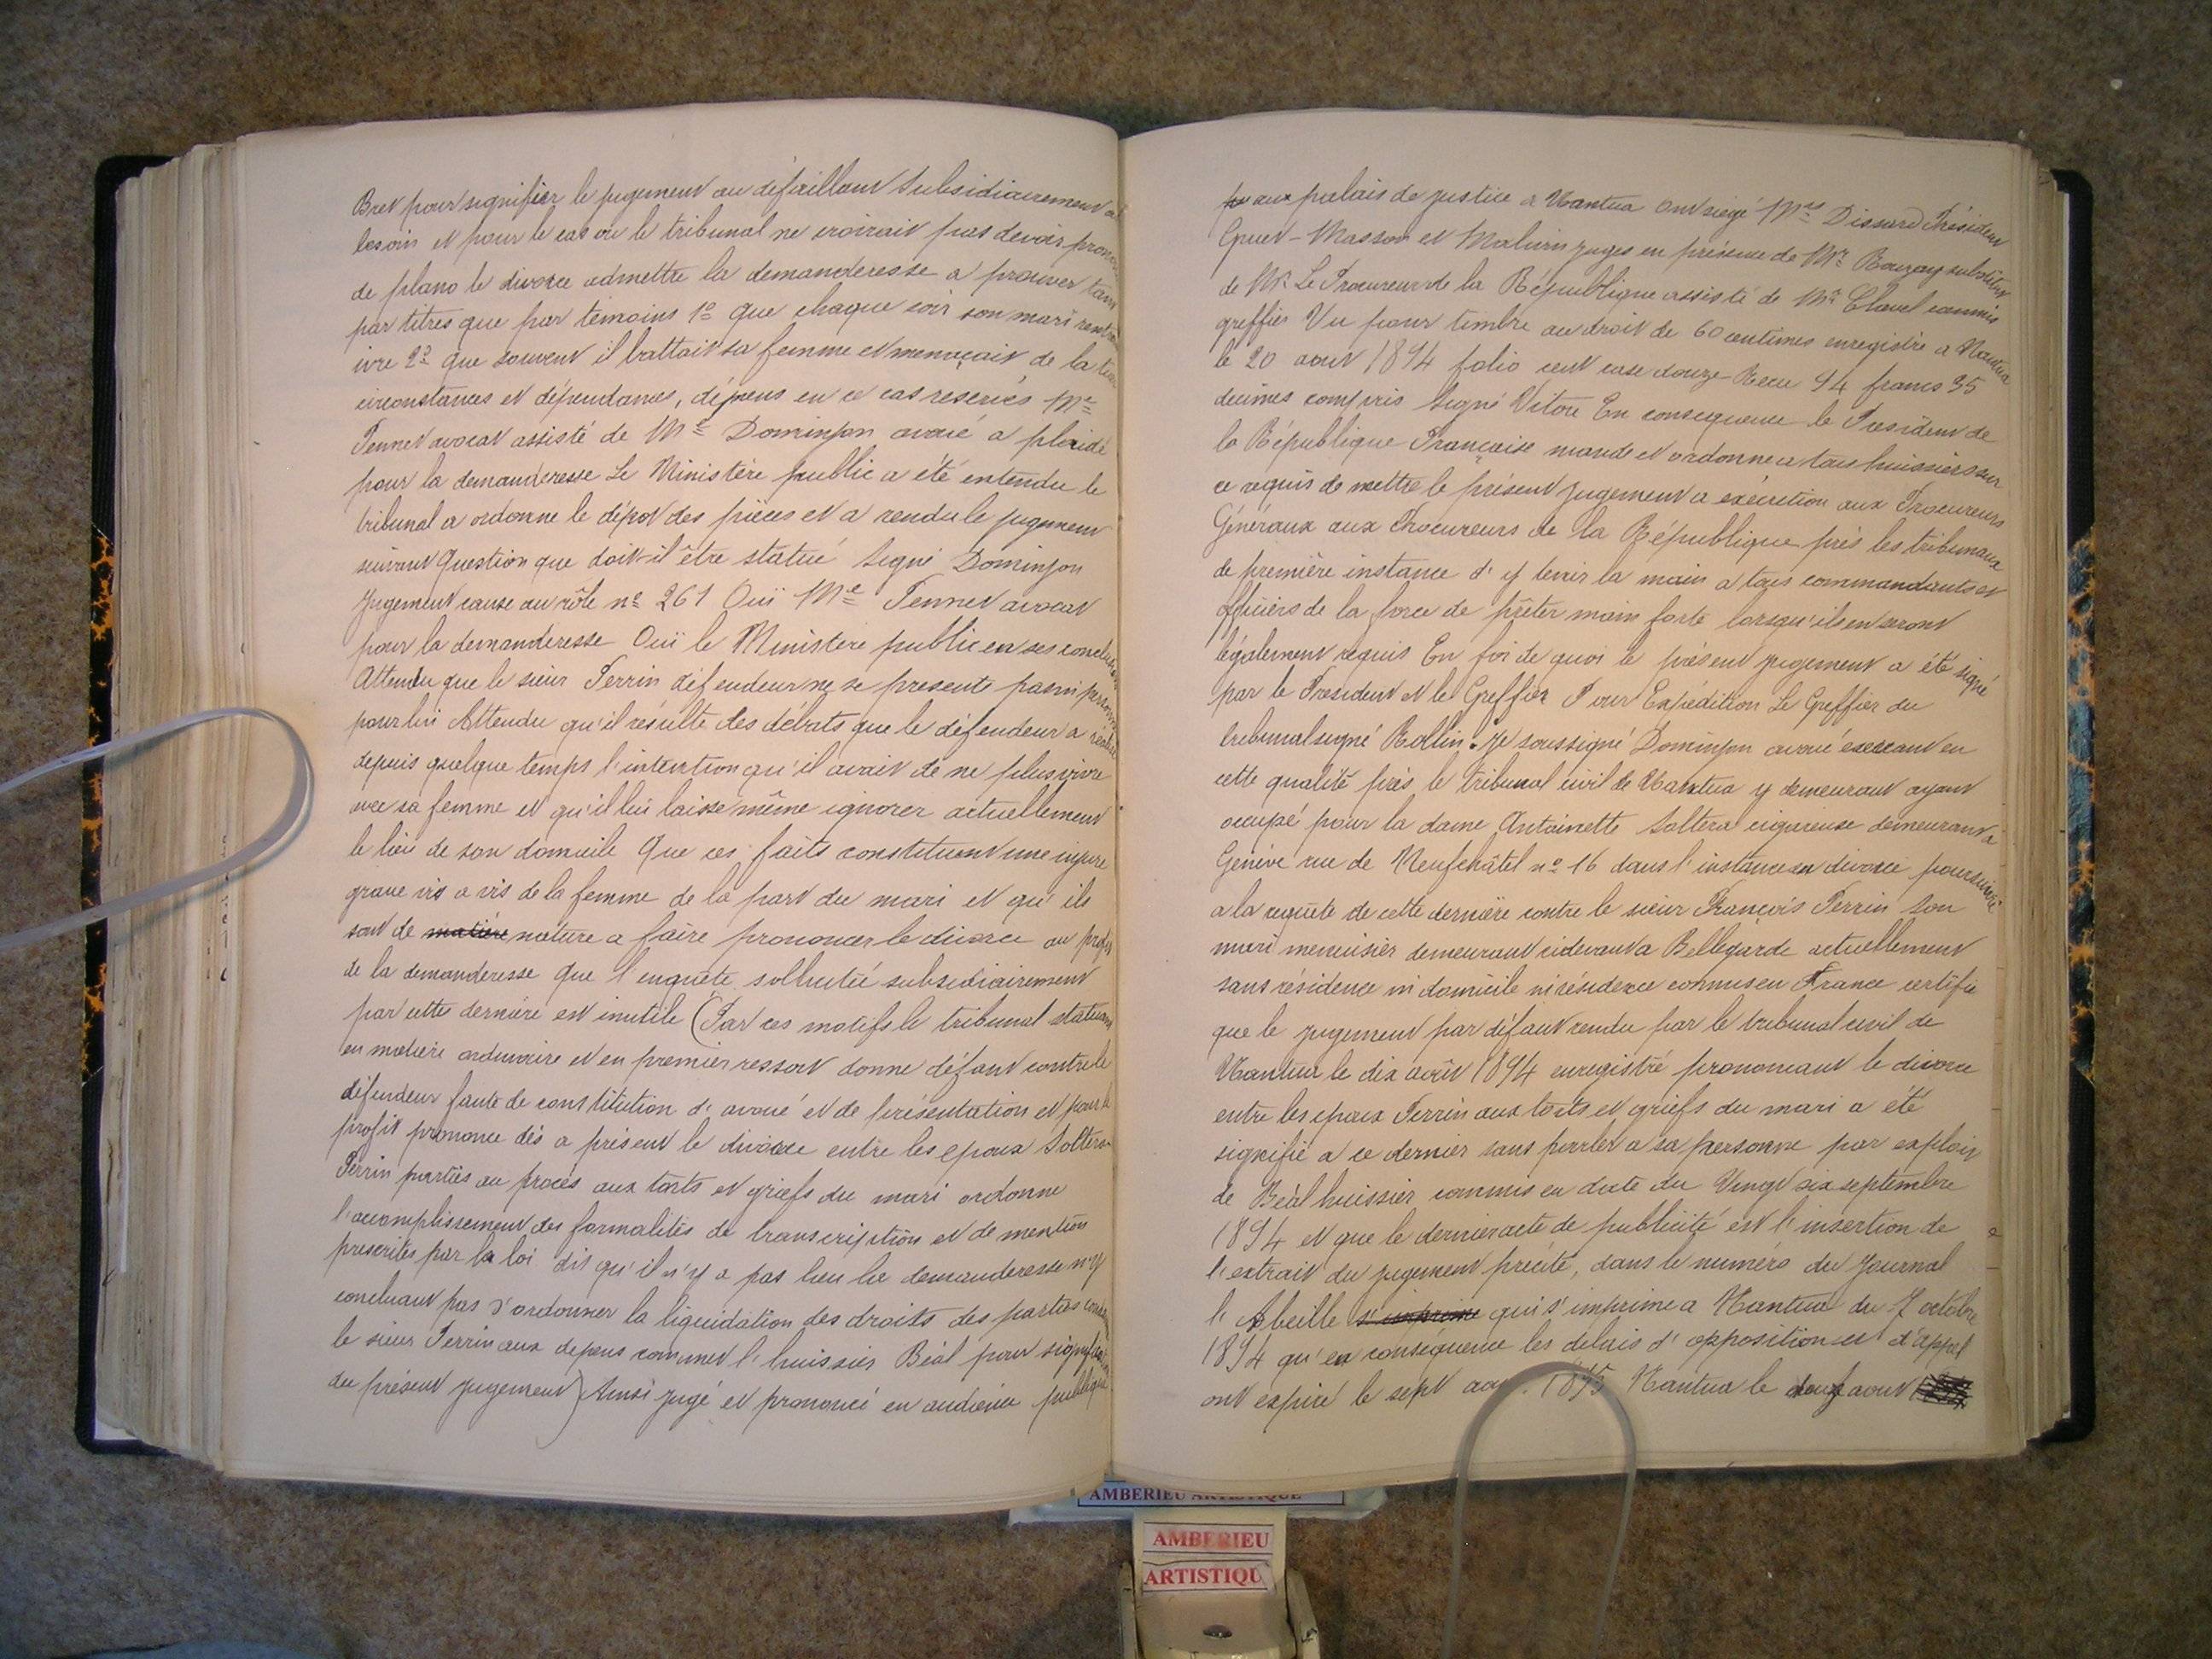 Bret pour signifier le jugement au défaillant Subsidiairement
besoin et pour le cas où le tribunal ne croirait pas devoir
de plano le divorce admettre la demanderesse a prouver tant
par titres que par témoins 1º que chaque soir son mari
ivre 2º que souvent il battait sa femme et menaçait de la
circonstances et dépendances, dépens en ce cas reservés Me
Tennet avocat assisté de Me Dominjon avoué a plaidé
pour la demanderesse Le Ministère public a été entendu le
tribunal a ordonné le dépot des pièces et a rendu le jugement
suivant Question que doit-il être statué Signé Dominjon
Jugement cause au rôle nº 261 Ouï Me Tennet avocat
pour la demanderesse Ouï le Ministère public en ses
Attendu que le sieur Perrin défendeur ne se presente pas ni
pour lui Attendu qu'il résulte des débats que le défendeur a
depuis quelque temps l'intention qu'il avait de ne plus vivre
avec sa femme et qu'il lui laisse même ignorer actuellement
le lieu de son domicile Que ces faits constituent une injure
grave vis a vis de la femme de la part du mari et qu'ils
sont de matière nature a faire prononcer le divorce au
de la demanderesse Que l'enquête sollicitée subsidiairement
par cette dernière est inutile (Par ces motifs le tribunal statuant
en matière ordinaire et en premier ressort donne défaut contre le
défendeur faute de constitution d'avoué et de présentation et pour le
profit prononce dès a présent le divorce entre les époux Soltera
Perrin parties au procès aux torts et griefs du mari ordonne
l'accomplissement des formalités de transcription et de mention
prescrites par la loi dit qu'il n'y a pas lieu la demanderesse n'y
concluant pas d'ordonner la liquidation des droits des parties
le sieur Perrin aux depens commet l'huissier Béal pour
du présent jugement) Ainsi jugé et prononcé en audience publique
au palais de justice a Nantua Ont siégé Mrs Dissard Président
Gruet-Masson et Maluin juges en présence de Mr Bouzay substitut
de Mr Le Procureur de la République assisté de Mr Clavel commis
greffier Vu pour timbre au droit de 60 centimes enregistré a Nantua
le 20 aout 1894 folio cent case douze Recu 94 francs 35
decimes compris Signé Vitore En consequence le President de
la République Française mande et ordonne a tous huissiers sur
ce requis de mettre le présent jugement a exécution aux Procureurs
Généraux aux Procureurs de la République près les tribunaux
de première instance d'y tenir la main a tous commandants et
officiers de la force de prêter main forte lorsqu'ils en seront
légalement requis En foi de quoi le présent jugement a été signé
par le President et le Greffier Pour Expédition Le Greffier du
tribunal signé Rollin. Je soussigné Dominjon avoué exercant en
cette qualité près le tribunal civil de Nantua y demeurant ayant
occupé pour la dame Antoinette Soltera cigareuse demeurant a
Genève rue de Neufchâtel nº 16 dans l'instance en divorce poursuivie
a la requête de cette dernière contre le sieur François Perrin Son
mari menuisier demeurant cidevant a Bellegarde actuellement
sans résidence ni domicile ni résidence connus en France certifie
que le jugement par défaut rendu par le tribunal civil de
Nantua le dix août 1894 enregistré prononcant le divorce
entre les epoux Perrin aux torts et griefs du mari a été
signifié a ce dernier sans parler a sa personne par exploit
de Béal huissier commis en date du Vingt six septembre
1894 et que le dernier acte de publicité est l'insertion de
l'extrait du jugement précité, dans le numéro du Journal
l'Abeille s'imprime qui s'imprime a Nantua du 7 octobre
1894 qu'en conséquence les delais d'opposition et d'appel
ont expiré le sept 1895 Nantua le aout
AMBERIEU ARTISTIQUE
AMBERIEU
ARTISTIQU